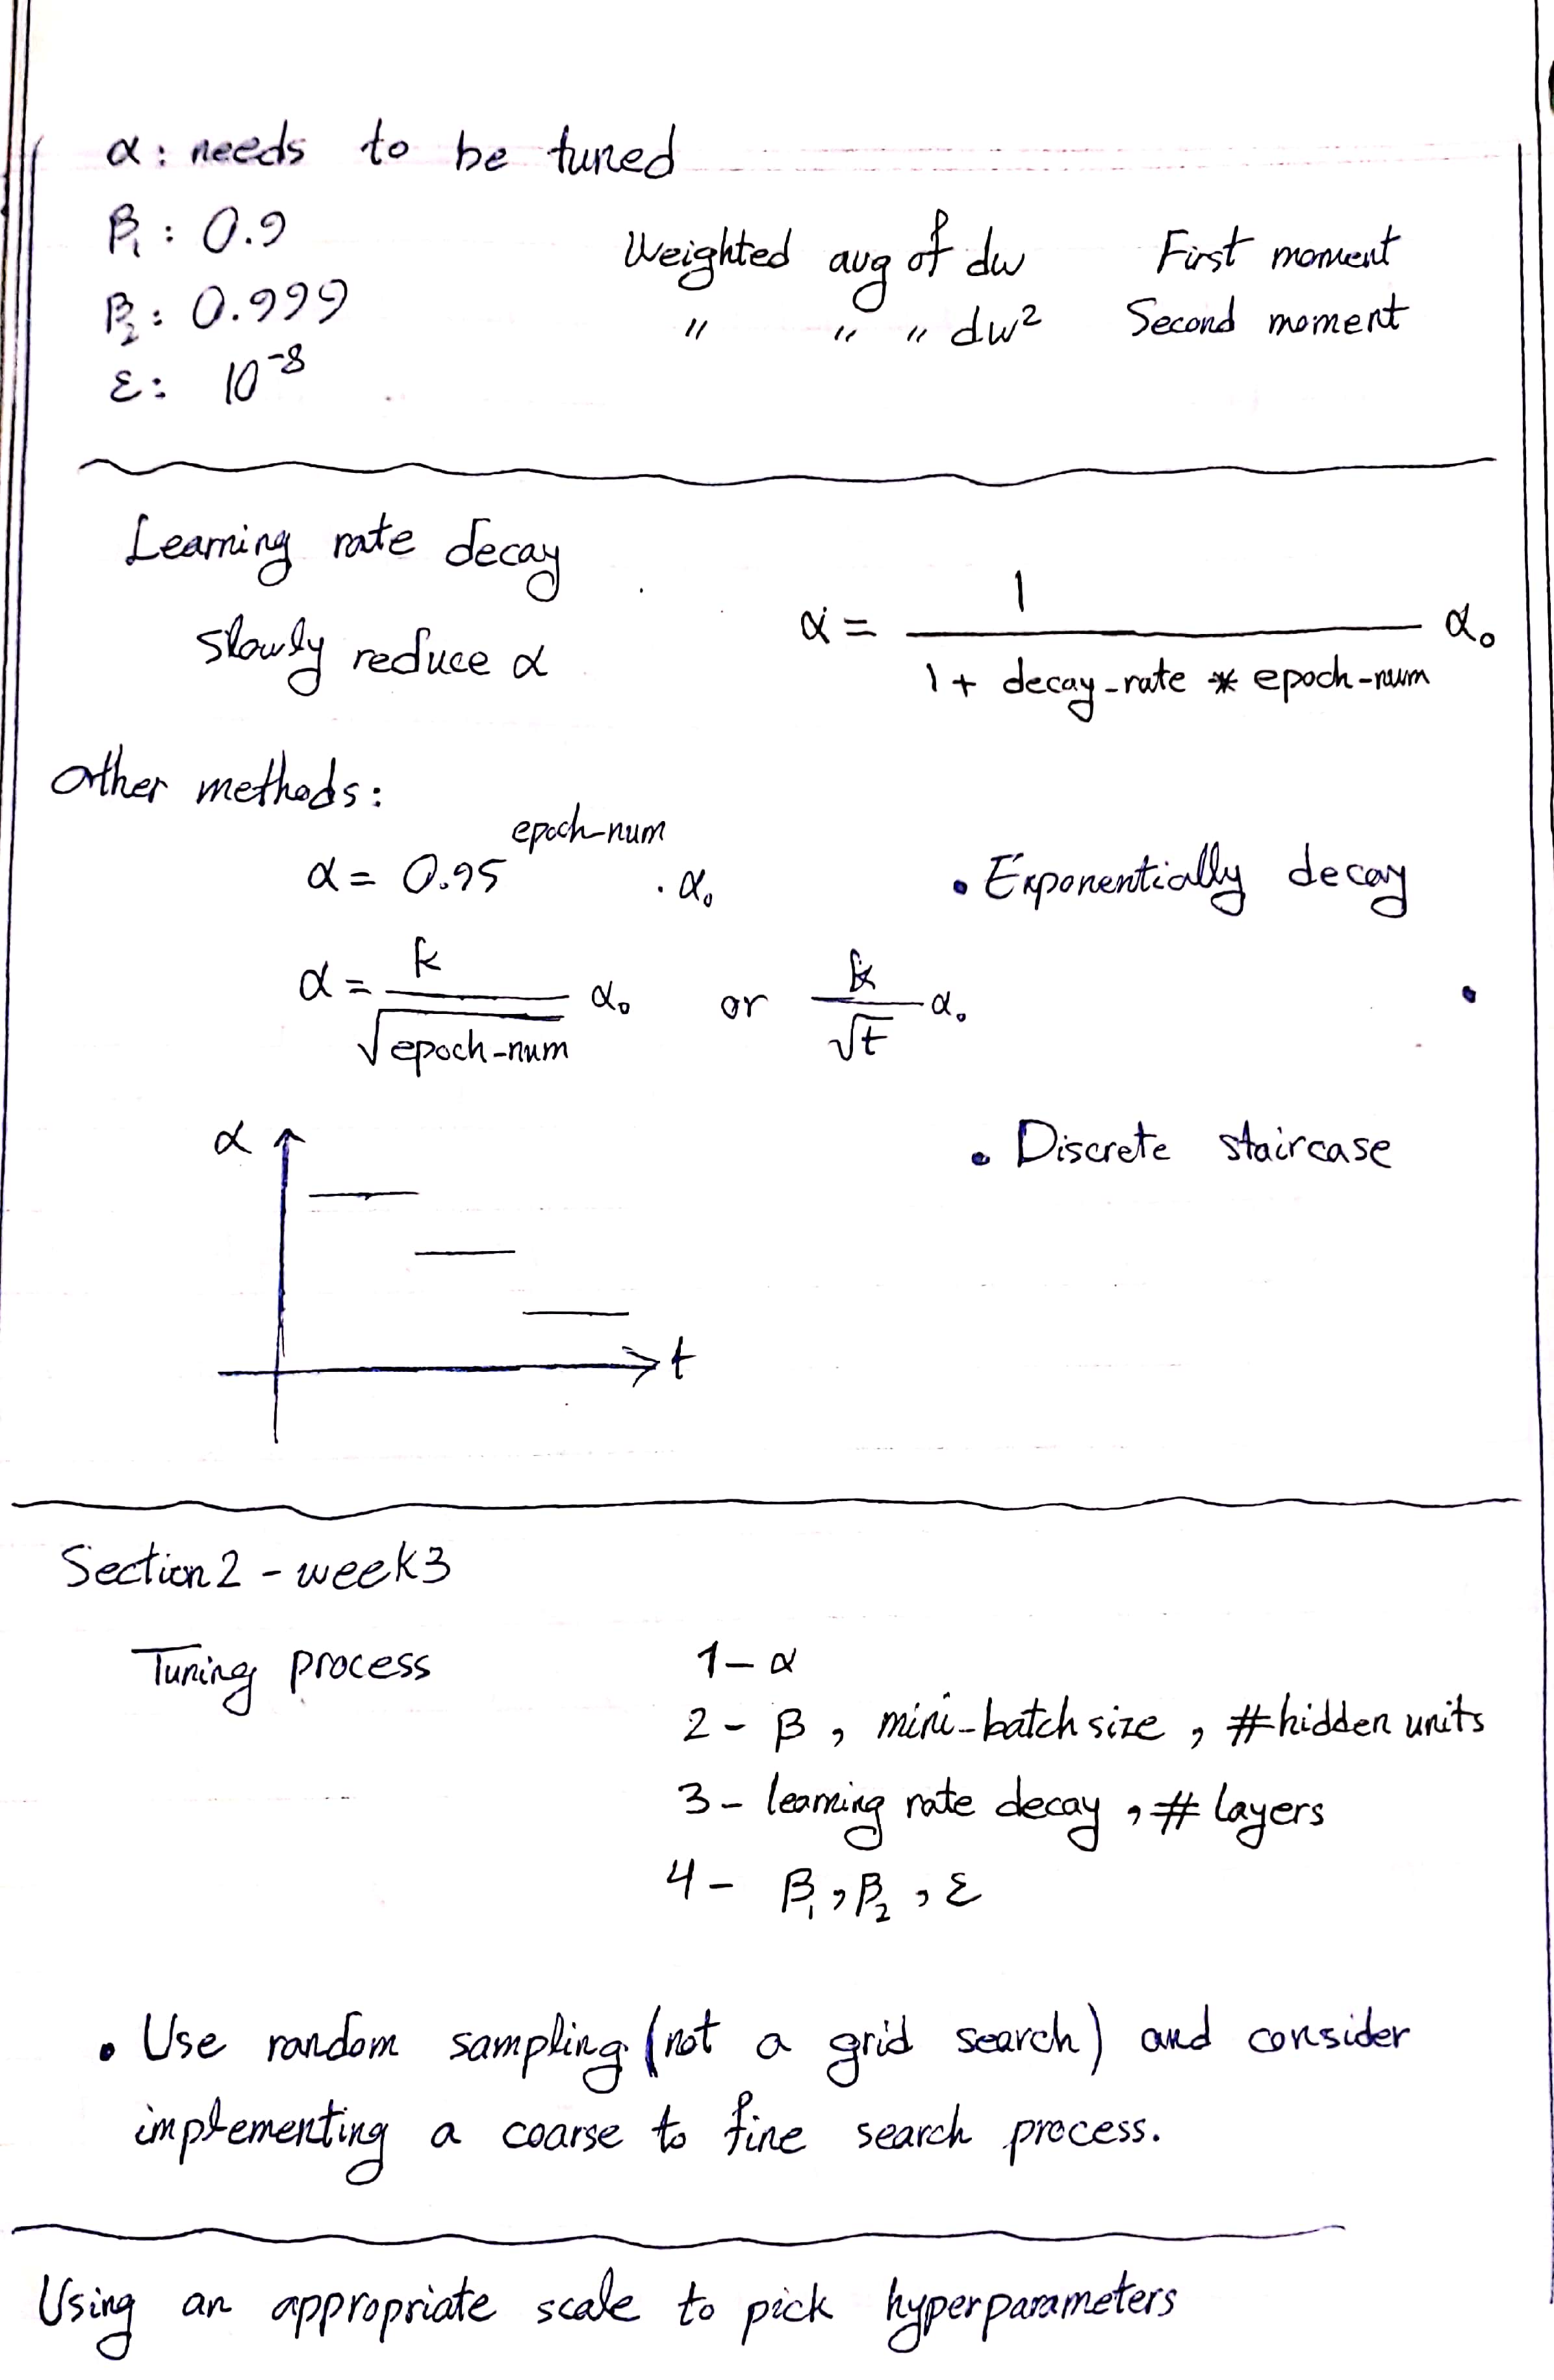 α : needs to be tuned
β₁ : 0.9 Weighted avg of dw First moment
β₂ : 0.999 〃 〃 〃 dw² Second moment
ε : 10⁻⁸
Learning rate decay
slowly reduce α
α = 1 / (1 + decay-rate * epoch-num) α₀
Other methods:
α = 0.95^epoch-num . α₀ • Exponentially decay
α = k / √epoch-num α₀ or k / √t α₀ •
α • Discrete staircase
t
Section 2 - week 3
Tuning process 1 - α
2 - β , mini-batch size , #hidden units
3 - learning rate decay , # layers
4 - β₁ , β₂ , ε
• Use random sampling (not a grid search) and consider
implementing a coarse to fine search process.
Using an appropriate scale to pick hyperparameters